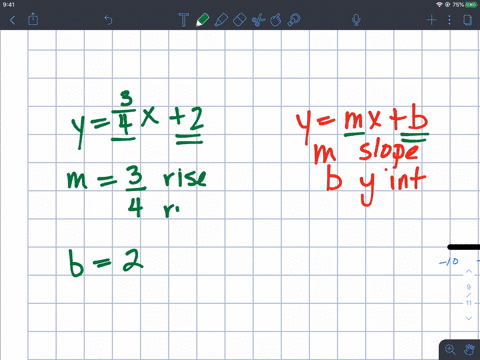 9:41
75%
y = 3/4 x + 2
m = 3/4 rise
r
b = 2
y = mx + b
m slope
b y int
-10
9
/
11